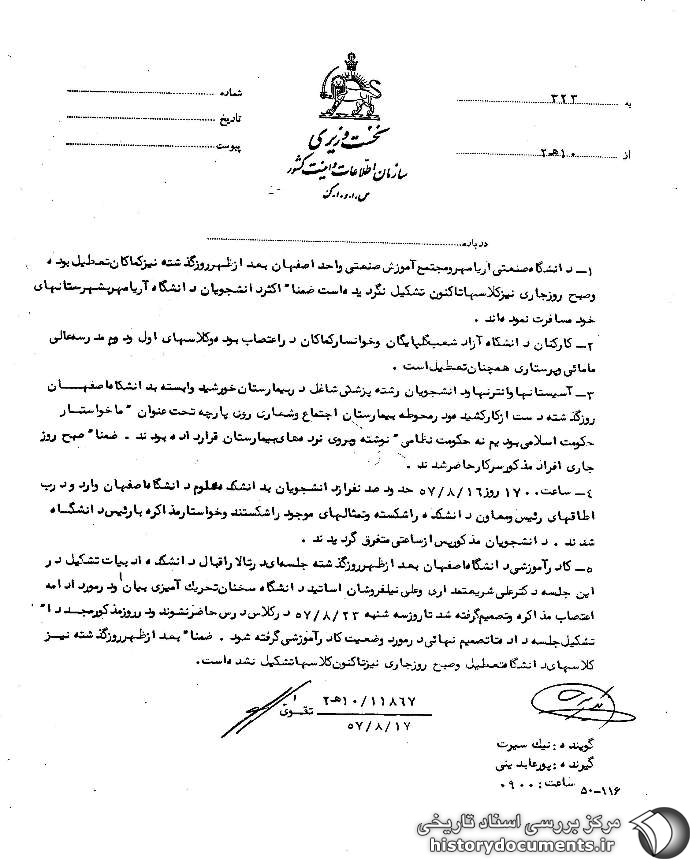 به ۳۲۳
از ۱۰هـ۲
شماره
تاریخ
پیوست
نخست وزیری
سازمان اطلاعات و امنیت کشور
س.ا.و.ا.ک
درباره
۱ـ دانشگاه صنعتی آریامهر و مجتمع آموزش صنعتی واحد اصفهان بعد از ظهر روز گذشته نیز کماکان تعطیل بوده
و صبح روز جاری نیز کلاسها تاکنون تشکیل نگردیده است ضمنا" اکثر دانشجویان دانشگاه آریامهر بشهرستانهای
خود مسافرت نموده اند .
۲ـ کارکنان دانشگاه آزاد شعب گلپایگان و خوانسار کماکان در اعتصاب بوده و کلاسهای اول و دوم مدرسه عالی
مامائی و پرستاری همچنان تعطیل است .
۳ـ آسیستانها و انترنها و دانشجویان رشته پزشکی شاغل در بیمارستان خورشید وابسته به دانشگاه اصفهان
روز گذشته دست از کار کشیده و در محوطه بیمارستان اجتماع و شعاری روی پارچه تحت عنوان " ما خواستار
حکومت اسلامی بودیم نه حکومت نظامی " نوشته و بر روی نرده های بیمارستان قرار داده بودند . ضمنا" صبح روز
جاری افراد مذکور سر کار حاضر شدند .
۴ـ ساعت ۱۷۰۰ روز ۵۷/۸/۱۶ حدود صد نفر از دانشجویان به دانشکده علوم دانشگاه اصفهان وارد و درب
اطاقهای رئیس و معاون دانشکده را شکسته و تمثالهای موجود را شکستند و خواستار مذاکره با رئیس دانشگاه
شدند . دانشجویان مذکور پس از ساعتی متفرق گردیدند .
۵ـ کادر آموزشی دانشگاه اصفهان بعد از ظهر روز گذشته جلسه ای در تالار اقبال دانشکده ادبیات تشکیل در
این جلسه دکتر علی شریعتمداری و علی نیلفروشان اساتید دانشگاه سخنان تحریک آمیزی بیان و در مورد ادامه
اعتصاب مذاکره و تصمیم گرفته شد تا روز سه شنبه ۵۷/۸/۲۳ در کلاس درس حاضر نشوند و در روز مذکور مجددا"
تشکیل جلسه داده تا تصمیم نهائی در مورد وضعیت کادر آموزشی گرفته شود . ضمنا" بعد از ظهر روز گذشته نیز
کلاسهای دانشگاه تعطیل و صبح روز جاری نیز تاکنون کلاسها تشکیل نشده است .
۱۰/۱۱۸۶۷هـ۲
تقوی
۵۷/۸/۱۷
گوینده : نیک سیرت
گیرنده : پورعابدینی
ساعت : ۰۹۰۰
۵۰-۱۱۶
مرکز بررسی اسناد تاریخی
historydocuments.ir